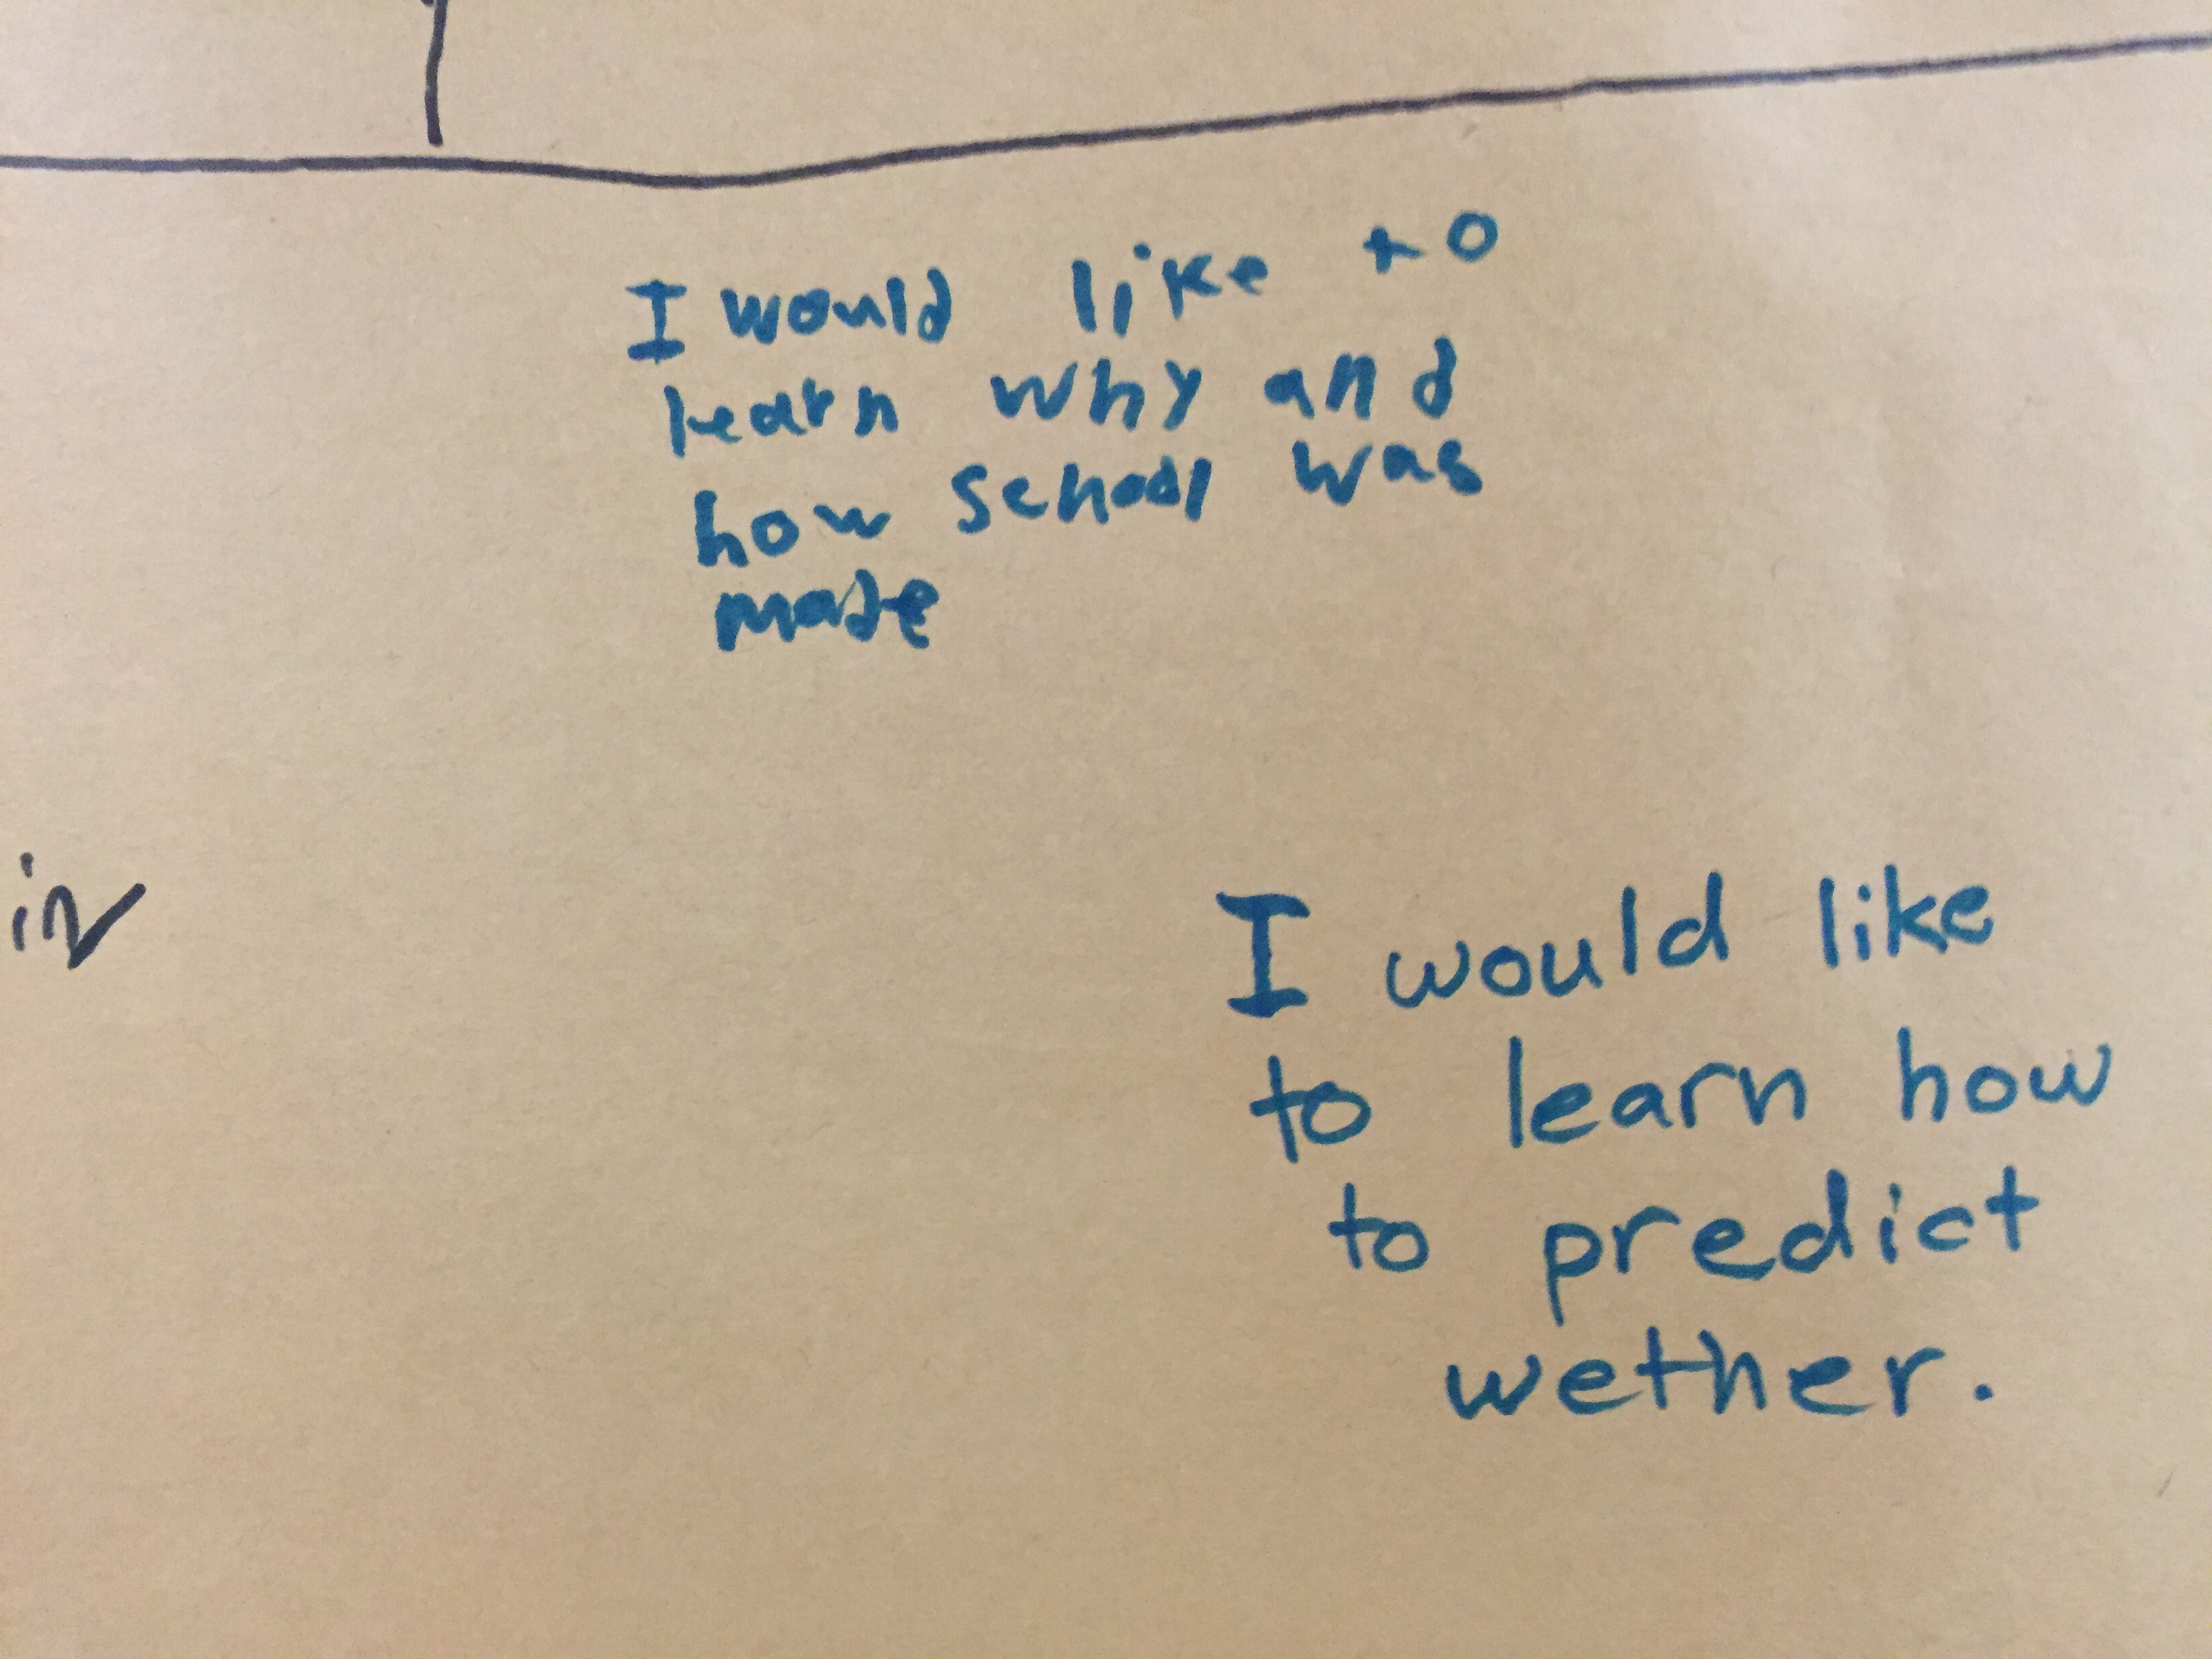 I would like to
learn why and
how school was
made
in
I would like
to learn how
to predict
wether.